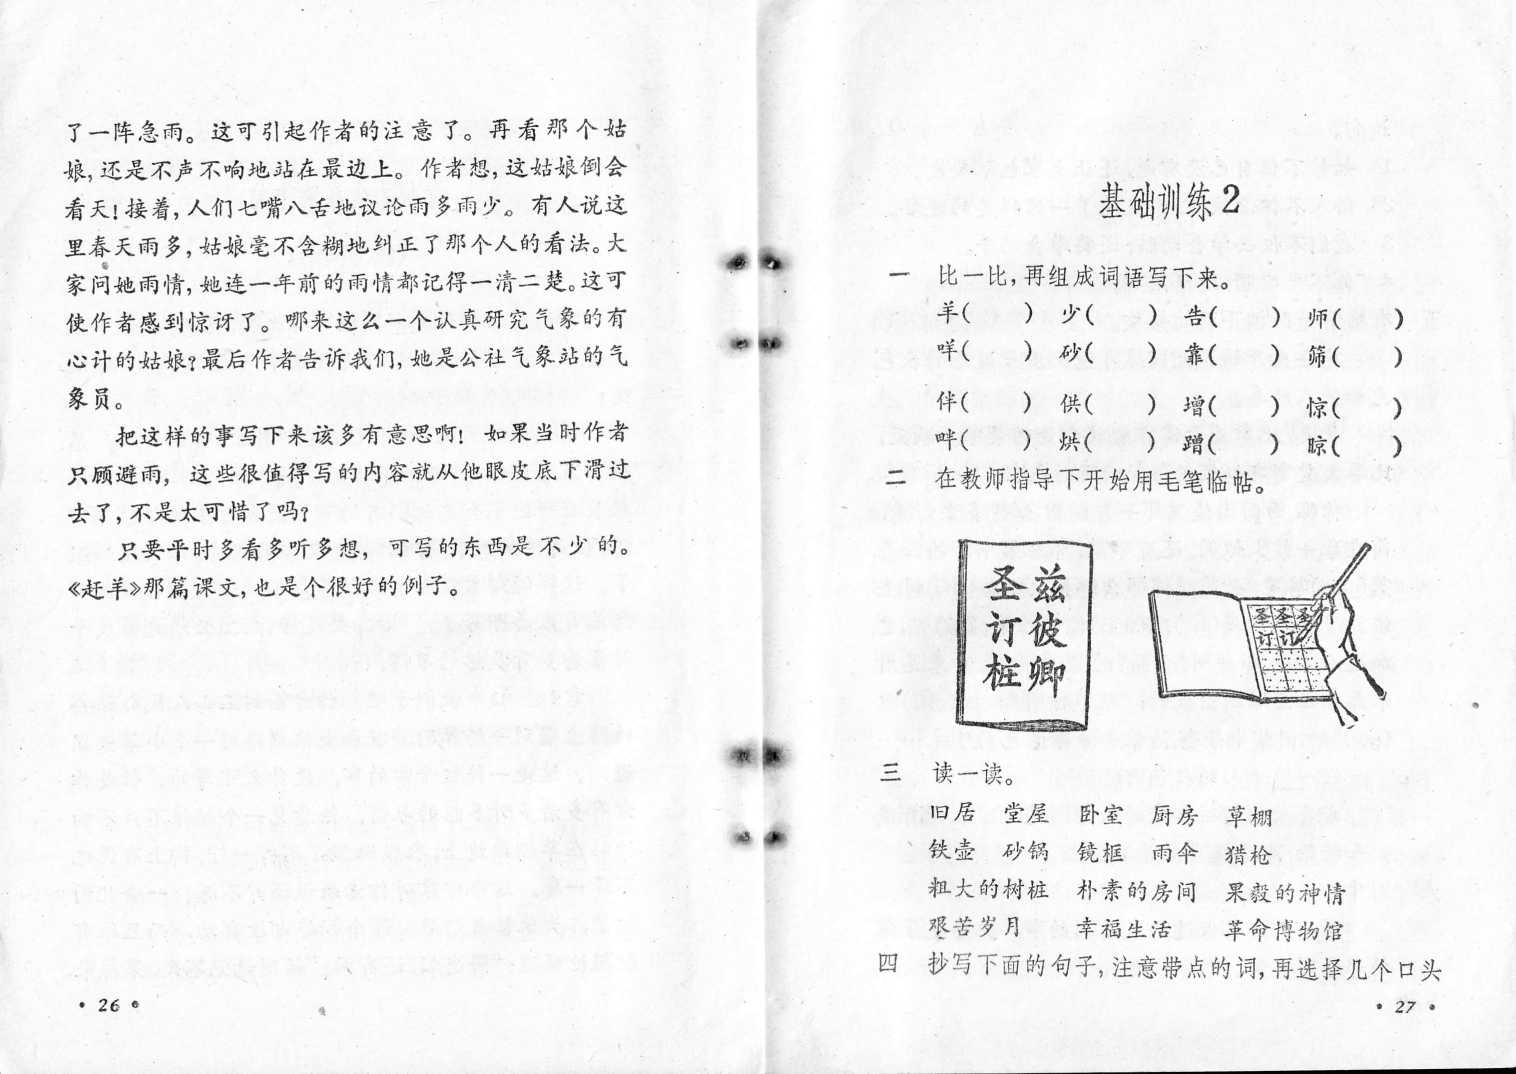 了一阵急雨。这可引起作者的注意了。再看那个姑
娘,还是不声不响地站在最边上。作者想,这姑娘倒会
看天!接着,人们七嘴八舌地议论雨多雨少。有人说这
里春天雨多,姑娘毫不含糊地纠正了那个人的看法。大
家问她雨情,她连一年前的雨情都记得一清二楚。这可
使作者感到惊讶了。哪来这么一个认真研究气象的有
心计的姑娘?最后作者告诉我们,她是公社气象站的气
象员。
把这样的事写下来该多有意思啊!如果当时作者
只顾避雨,这些很值得写的内容就从他眼皮底下滑过
去了,不是太可惜了吗?
只要平时多看多听多想,可写的东西是不少的。
《赶羊》那篇课文,也是个很好的例子。
· 26 ·
基础训练2
一 比一比,再组成词语写下来。
羊( ) 少( ) 告( ) 师( )
咩( ) 砂( ) 靠( ) 筛( )
伴( ) 供( ) 增( ) 惊( )
畔( ) 烘( ) 蹭( ) 晾( )
二 在教师指导下开始用毛笔临帖。
兹彼卿
圣订桩
圣圣圣
订订
三 读一读。
旧居 堂屋 卧室 厨房 草棚
铁壶 砂锅 镜框 雨伞 猎枪
粗大的树桩 朴素的房间 果毅的神情
艰苦岁月 幸福生活 革命博物馆
四 抄写下面的句子,注意带点的词,再选择几个口头
· 27 ·